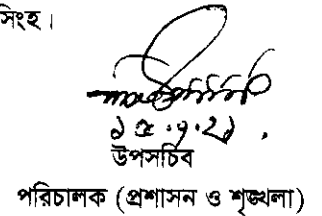 সিংহ।
উপসচিব
পরিচালক (প্রশাসন ও শৃঙ্খলা)